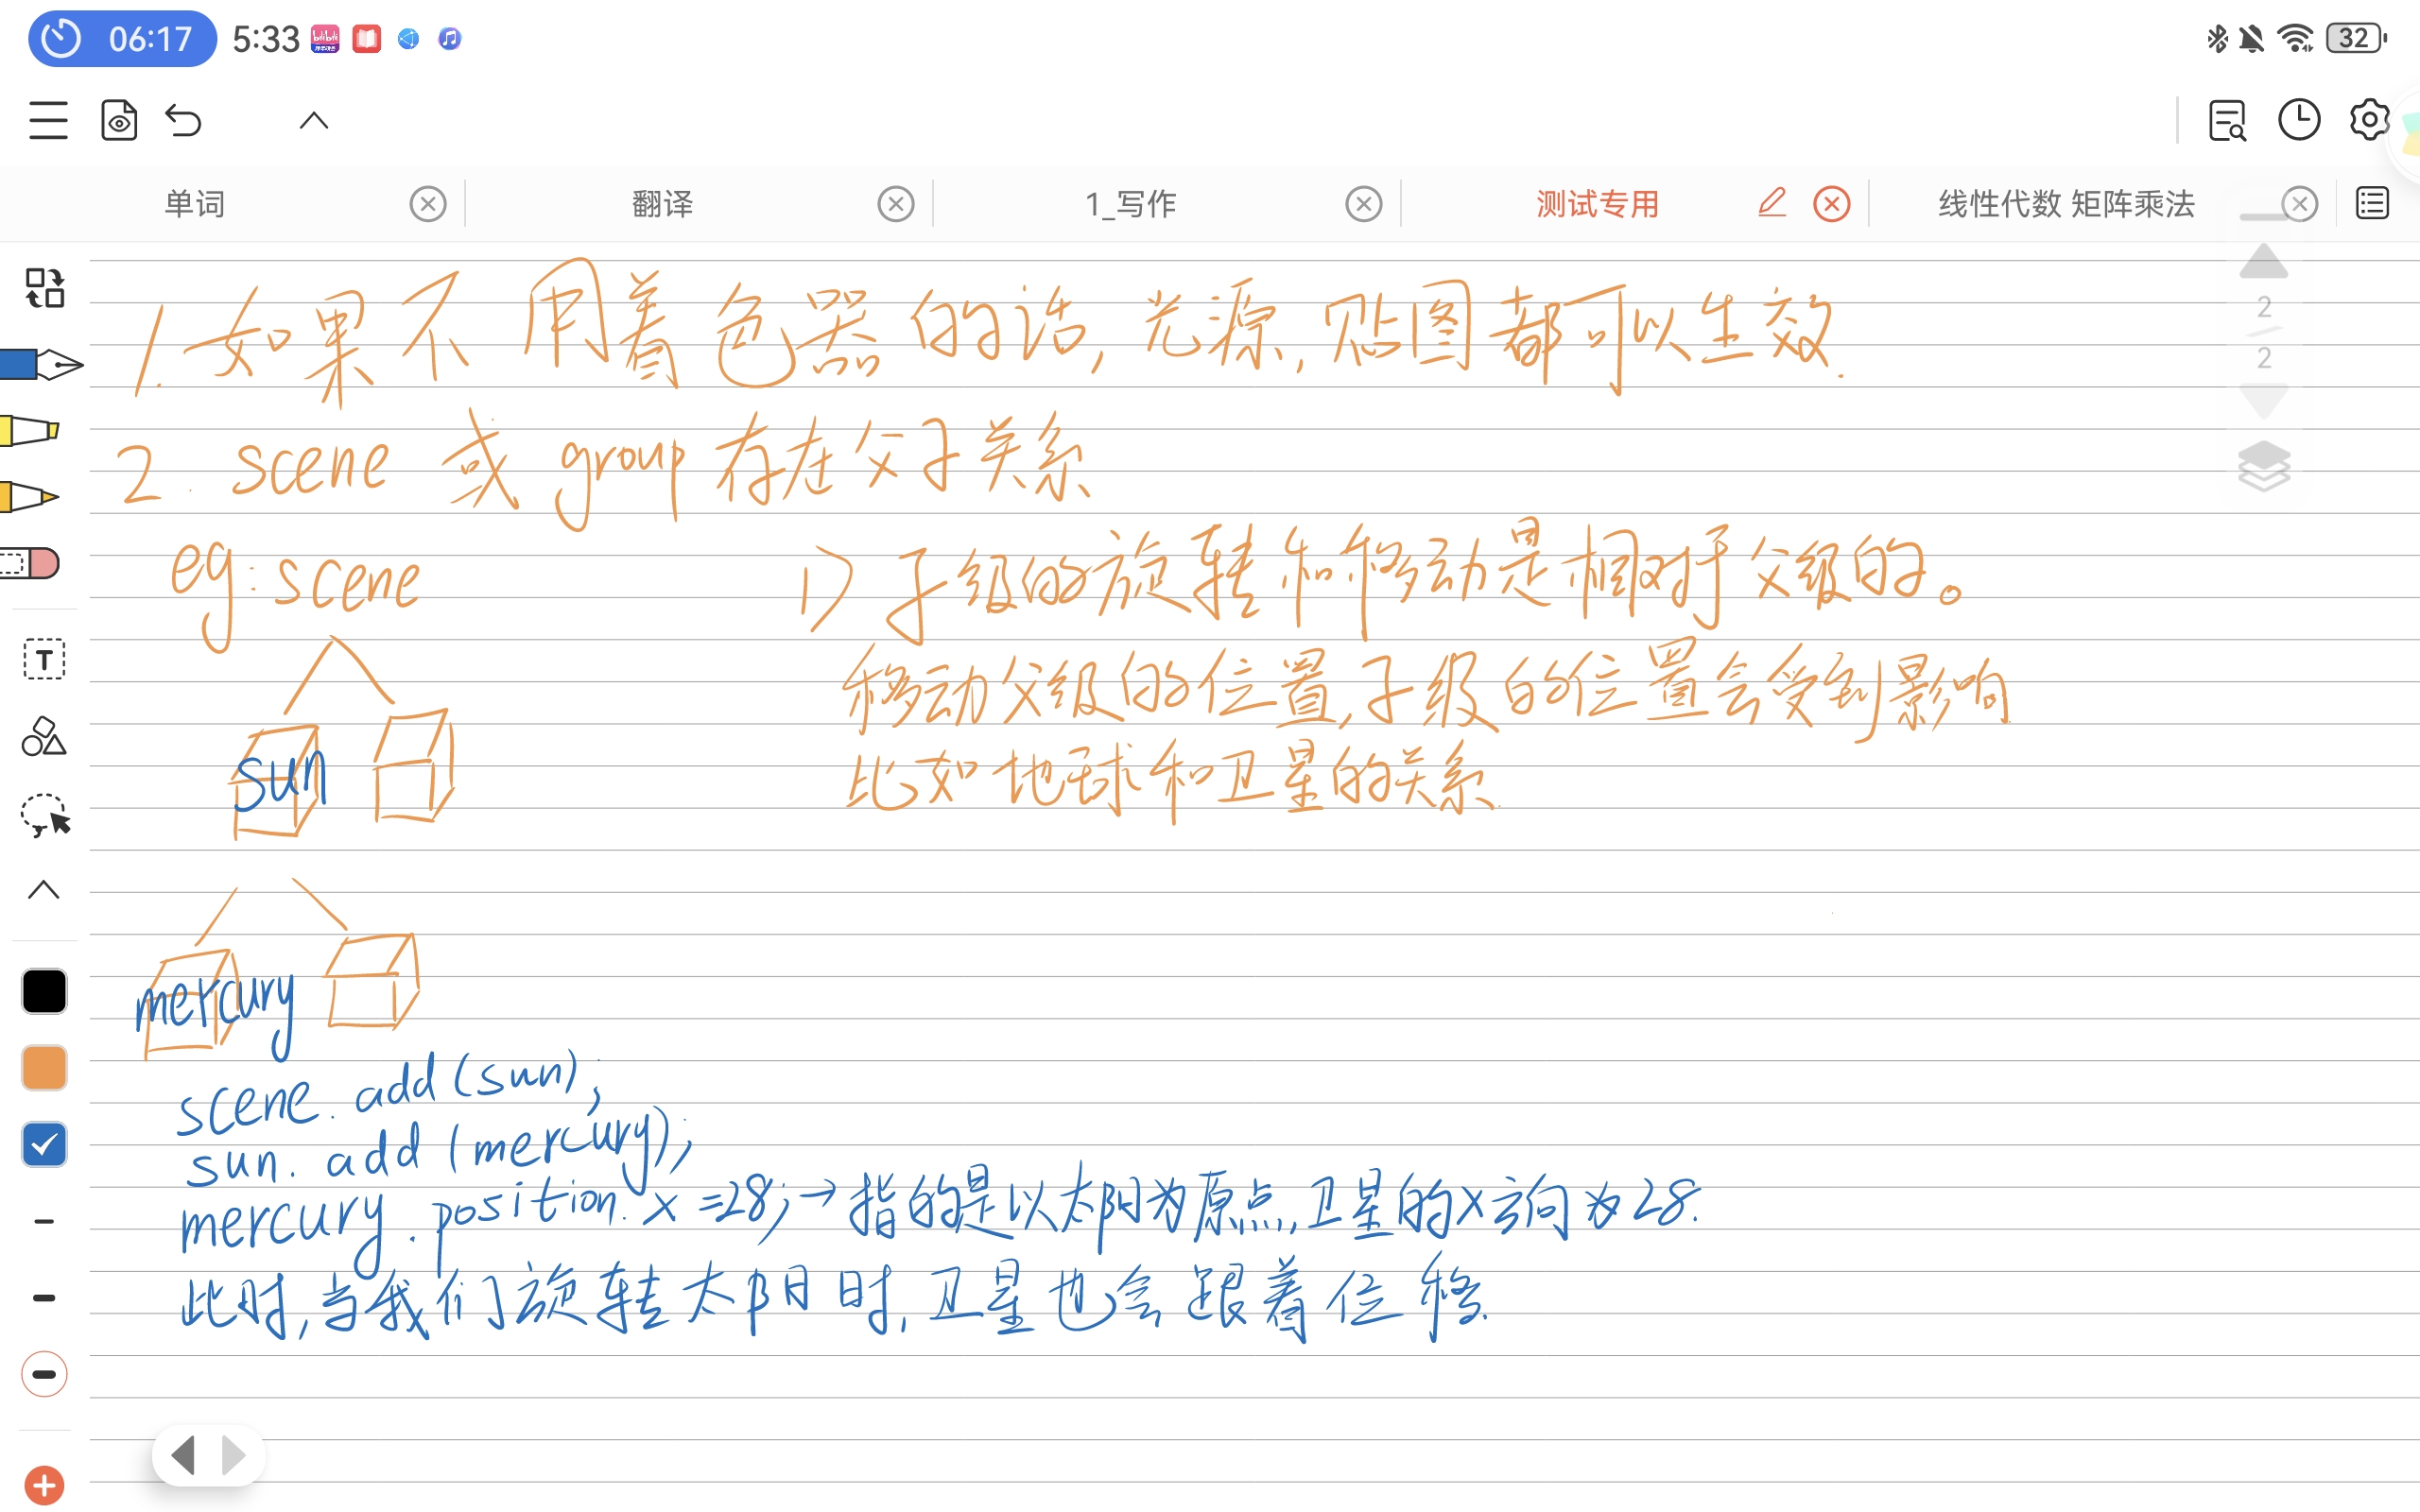 06:17 5:33 32
单词 翻译 1_写作 测试专用 线性代数 矩阵乘法
2
2
1.如果不用着色器的话,光源,贴图都可以生效.
2. scene 或 group 存在父子关系
eg:scene
1) 子级的旋转和移动是相对于父级的。
移动父级的位置,子级的位置会受到影响
比如地球和卫星的关系.
sun
mercury
scene.add(sun);
sun.add(mercury);
mercury.position.x=28;→指的是以太阳为原点,卫星的X方向为28.
此时,当我们旋转太阳时,卫星也会跟着位移.
T